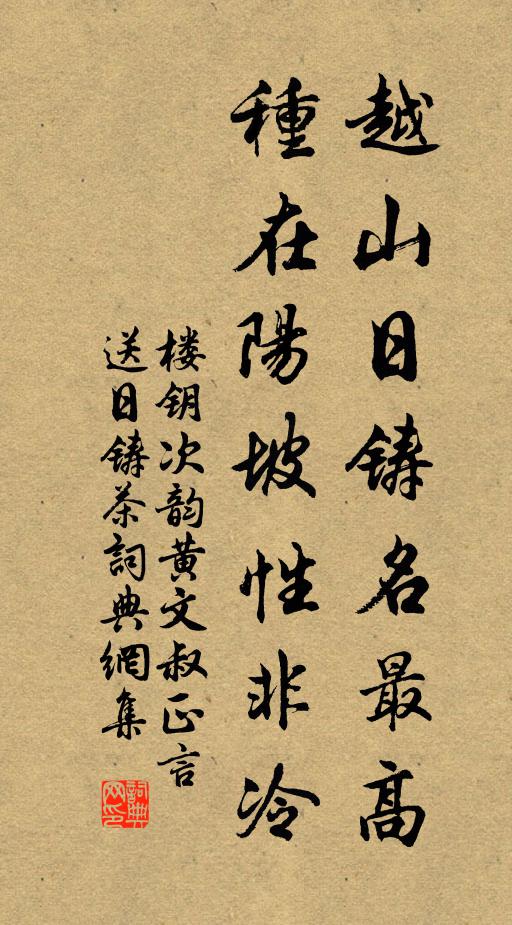 越山日铸名最高
種在陽坡性非冷
楼钥次韵黄文叔正言
送日铸茶詞典網集
詞典
网印